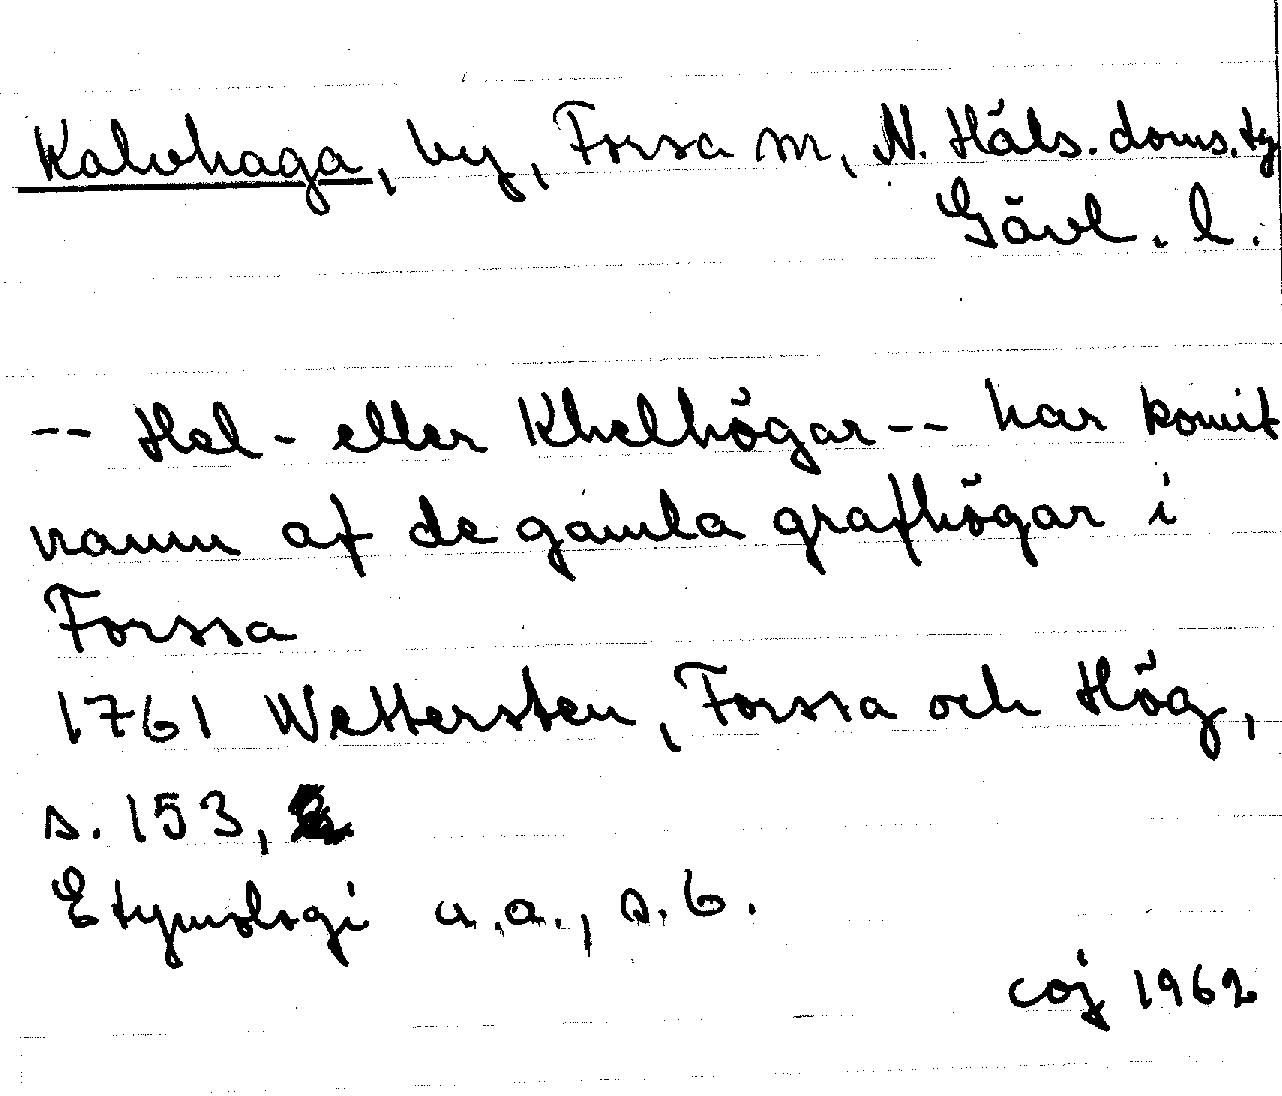 Kalvhaga, by, Forsa sn, N. Häls. doms. tg
Gävl. l.
-- Hel- eller Khelhögar -- har komit
namn af de gamla grafhögar i
Forssa
1761 Wettersten, Forssa och Hög,
s. 153,
Etymologi a.a., s. 6.
coj 1962